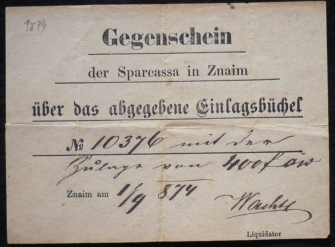 1874
Gegenschein
der Sparcassa in Znaim
über das abgegebene Einlagsbüchel
№ 10376 mit der
Zulage von 400 f ow
Znaim am 1/9 874
Liquidator